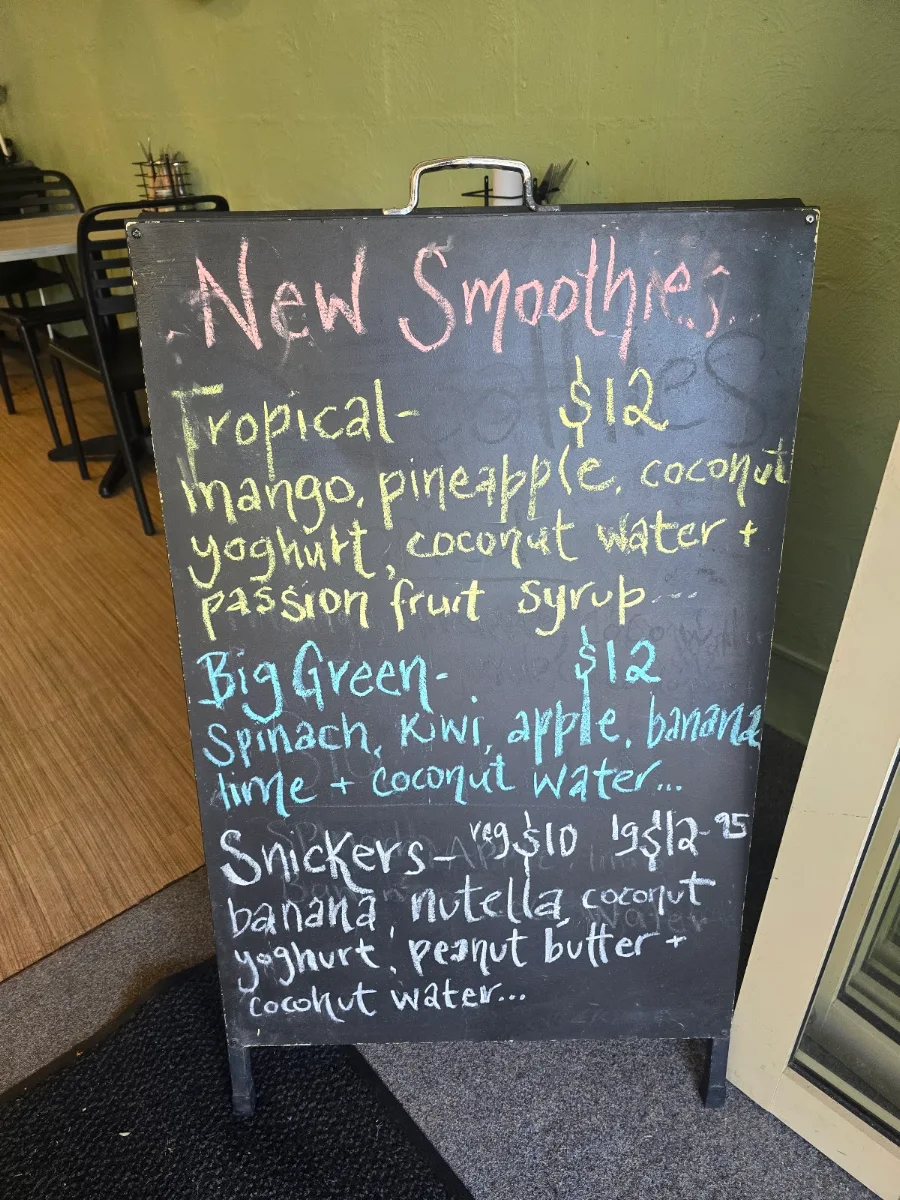 New Smoothies...
Tropical- $12
mango, pineapple, coconut
yoghurt, coconut water +
passion fruit syrup...
Big Green- $12
Spinach, Kiwi, apple, banana
lime + coconut water...
Snickers- reg $10 lg $12-95
banana, nutella, coconut
yoghurt, peanut butter +
coconut water...